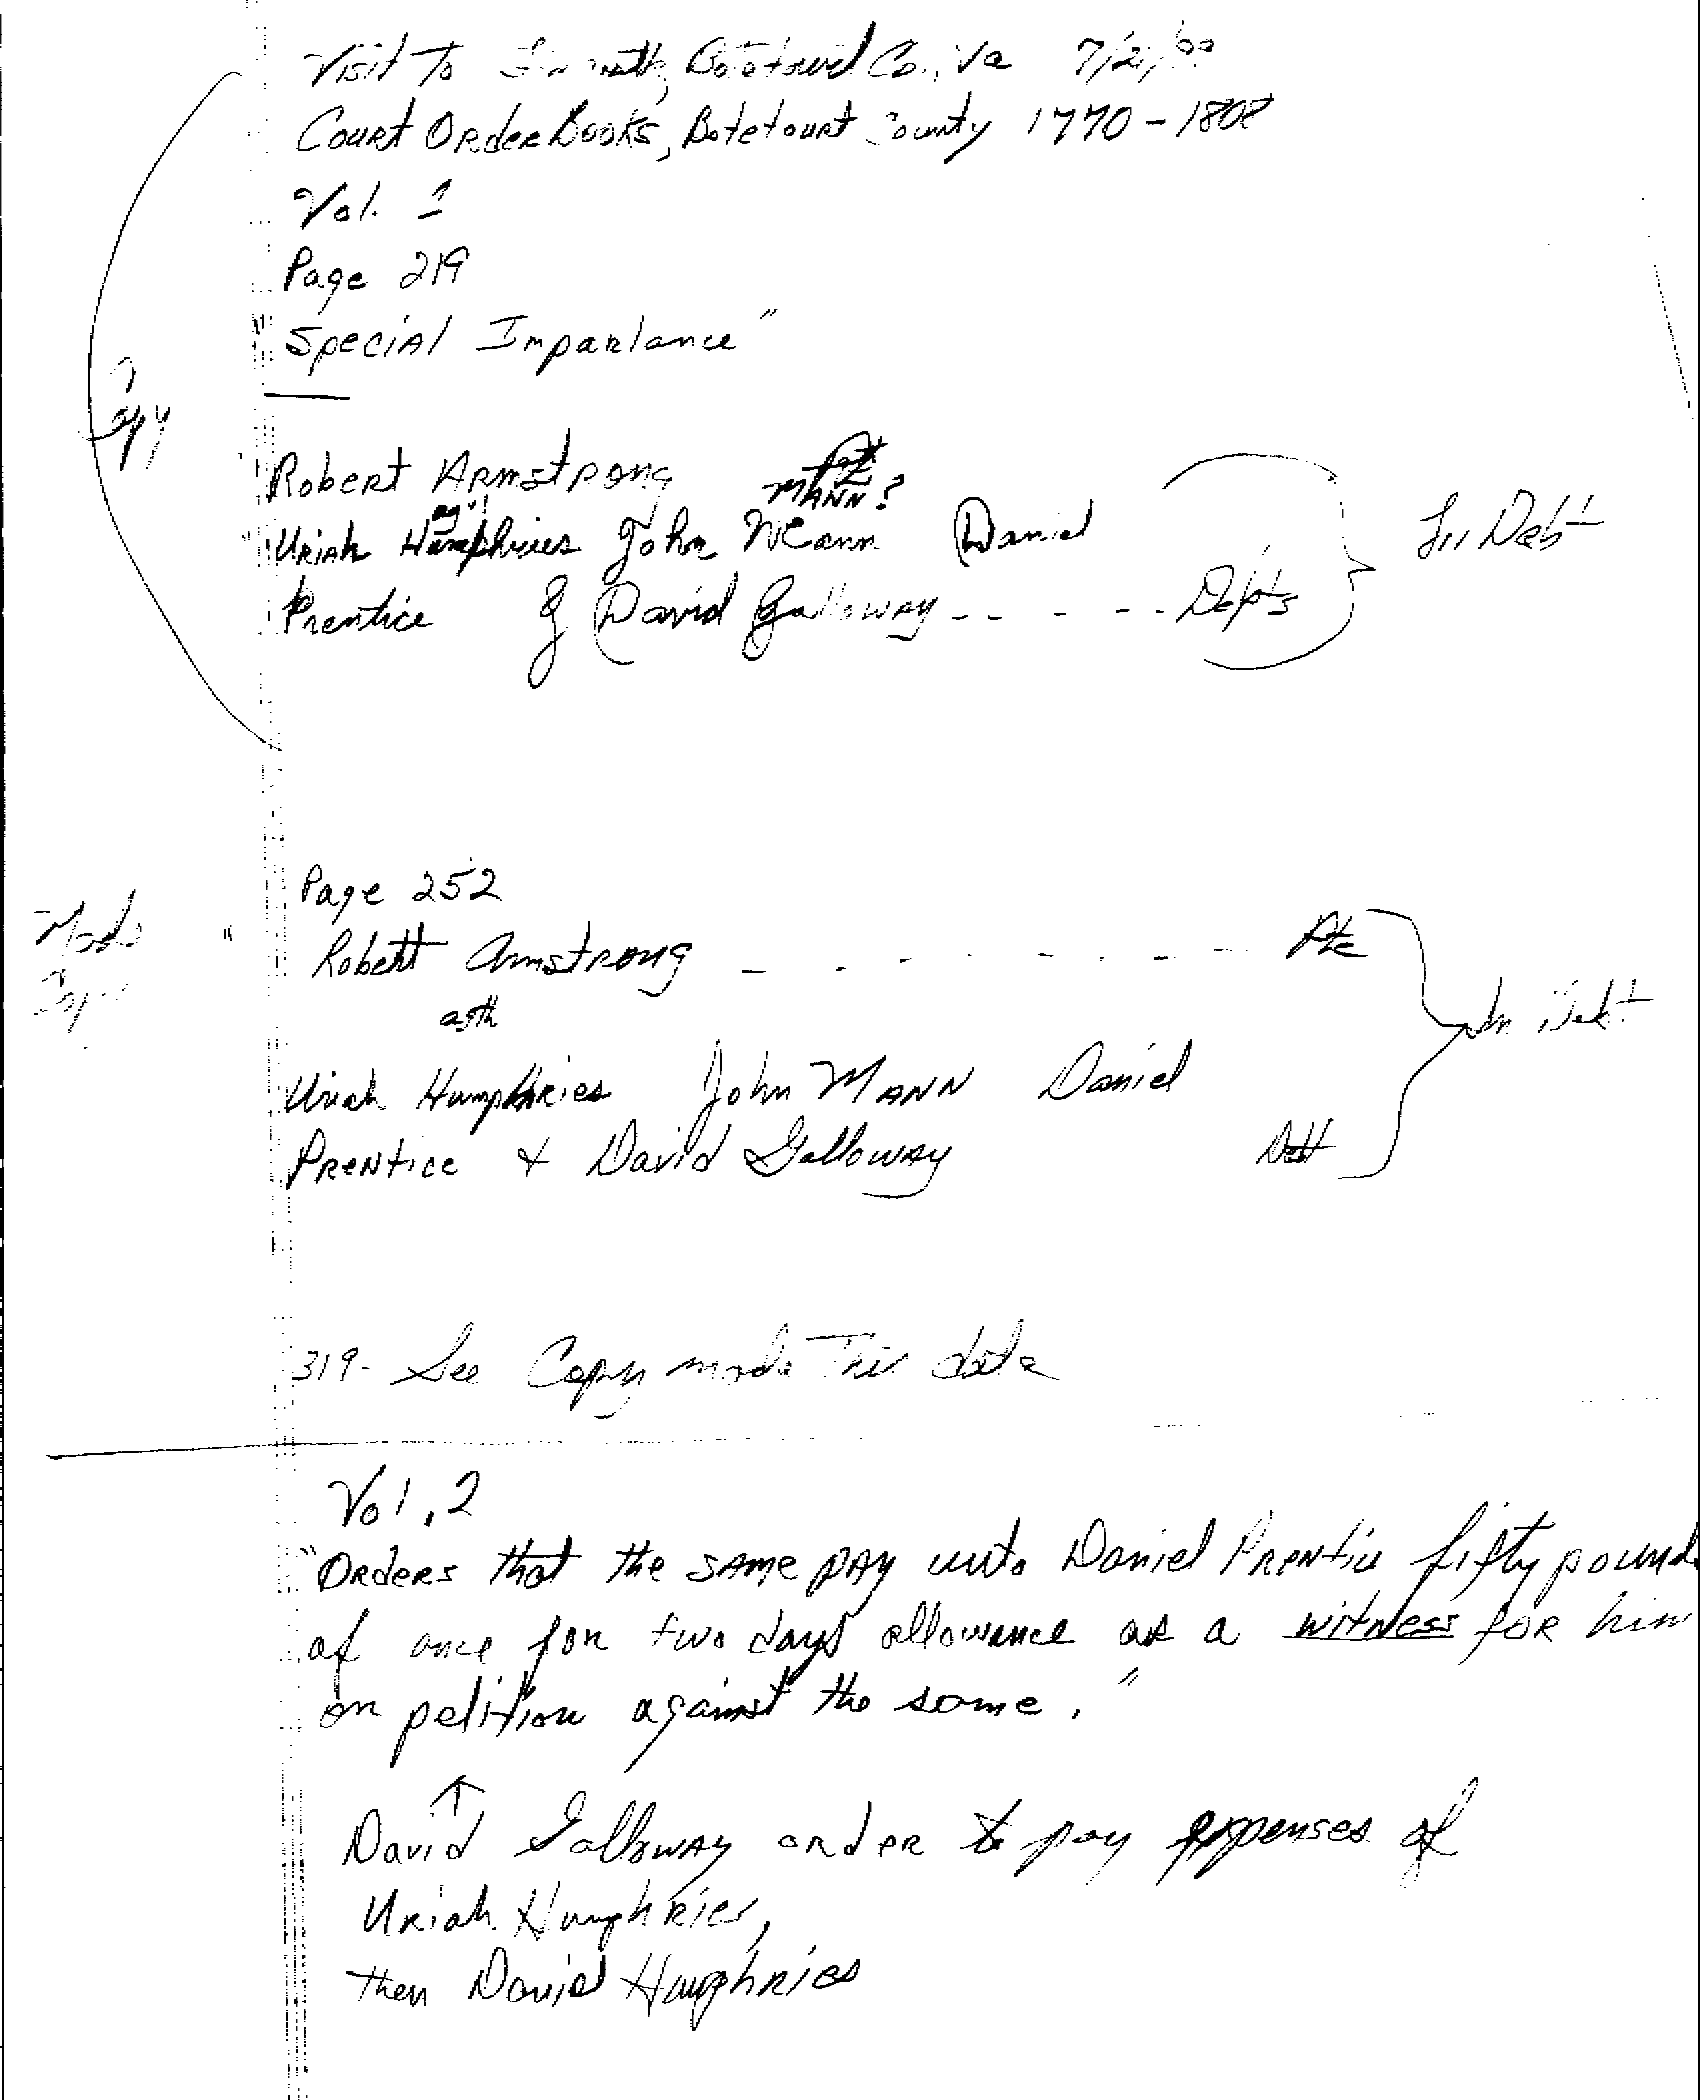 Visit to Botetourt Co., Va
Court Order Books, Botetourt County 1770-1808
Vol. 1
Page 219
Special Imparlance"
Robert Armstrong
MANN?
agst
Uriah Humphries John McCann Daniel
Prentice & David Galloway - - - - - Defts
In Debt
Page 252
Robert Armstrong - - - - - - - -
Made
Copy
Uriah Humphries John MANN Daniel
Prentice & David Galloway
In Debt
319- See Copy made This date
Vol. 2
"Orders that the same pay unto Daniel Prentice fifty pounds
of once for two days allowance as a witness for him
on petition against the same."
↑
David Galloway order to pay expenses of
Uriah Humphries,
then David Humphries